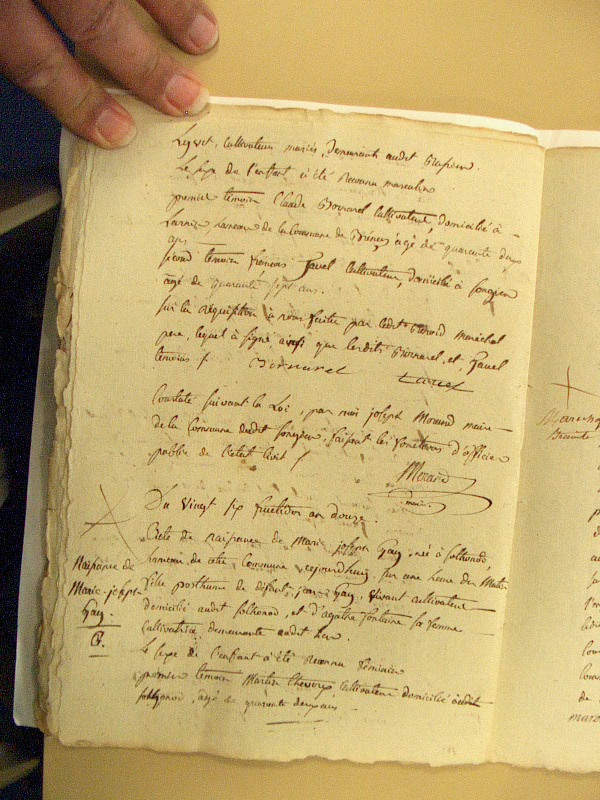 cultivateurs mariés, demeurants audit
Le sexe de l'enfant a été reconnu masculin
premier temoin Claude Bornarel cultivateur, domicilié à
hameau de la Commune de Brénaz agé de quarante deux
ans
second temoin françois Gavel cultivateur, domicilié à songieu
agé de quarante sept ans.
sur la réquisition à nous faite par ledit benoid maréchal
pere, lequel a signé ainsi que lesdits Bornarel, et, Gavel
temoins /. Bornarel
Constaté suivant la Loi, par moi joseph Morand maire
de la Commune dudit songieu, faisant les fonctions d'officier
public de l'etat civil /.
Morand
maire
Du Vingt six fructidor an douze.
Acte de naissance de Marie joseph Gay, née à sothonod,
hameau de cette Commune cejourdhuy, sur une heure du Matin
fille posthume de défunt jean Gay, vivant cultivateur
domicilié audit sothonod, et d'agathe fontaine sa femme
cultivatrice demeurante audit lieu.
Le sexe de l'enfant a été reconnu féminin
premier temoin Martin cultivateur domicilié audit
sothonod, agé de quarante deux ans
Naissance de
Marie joseph
Gay.
G.